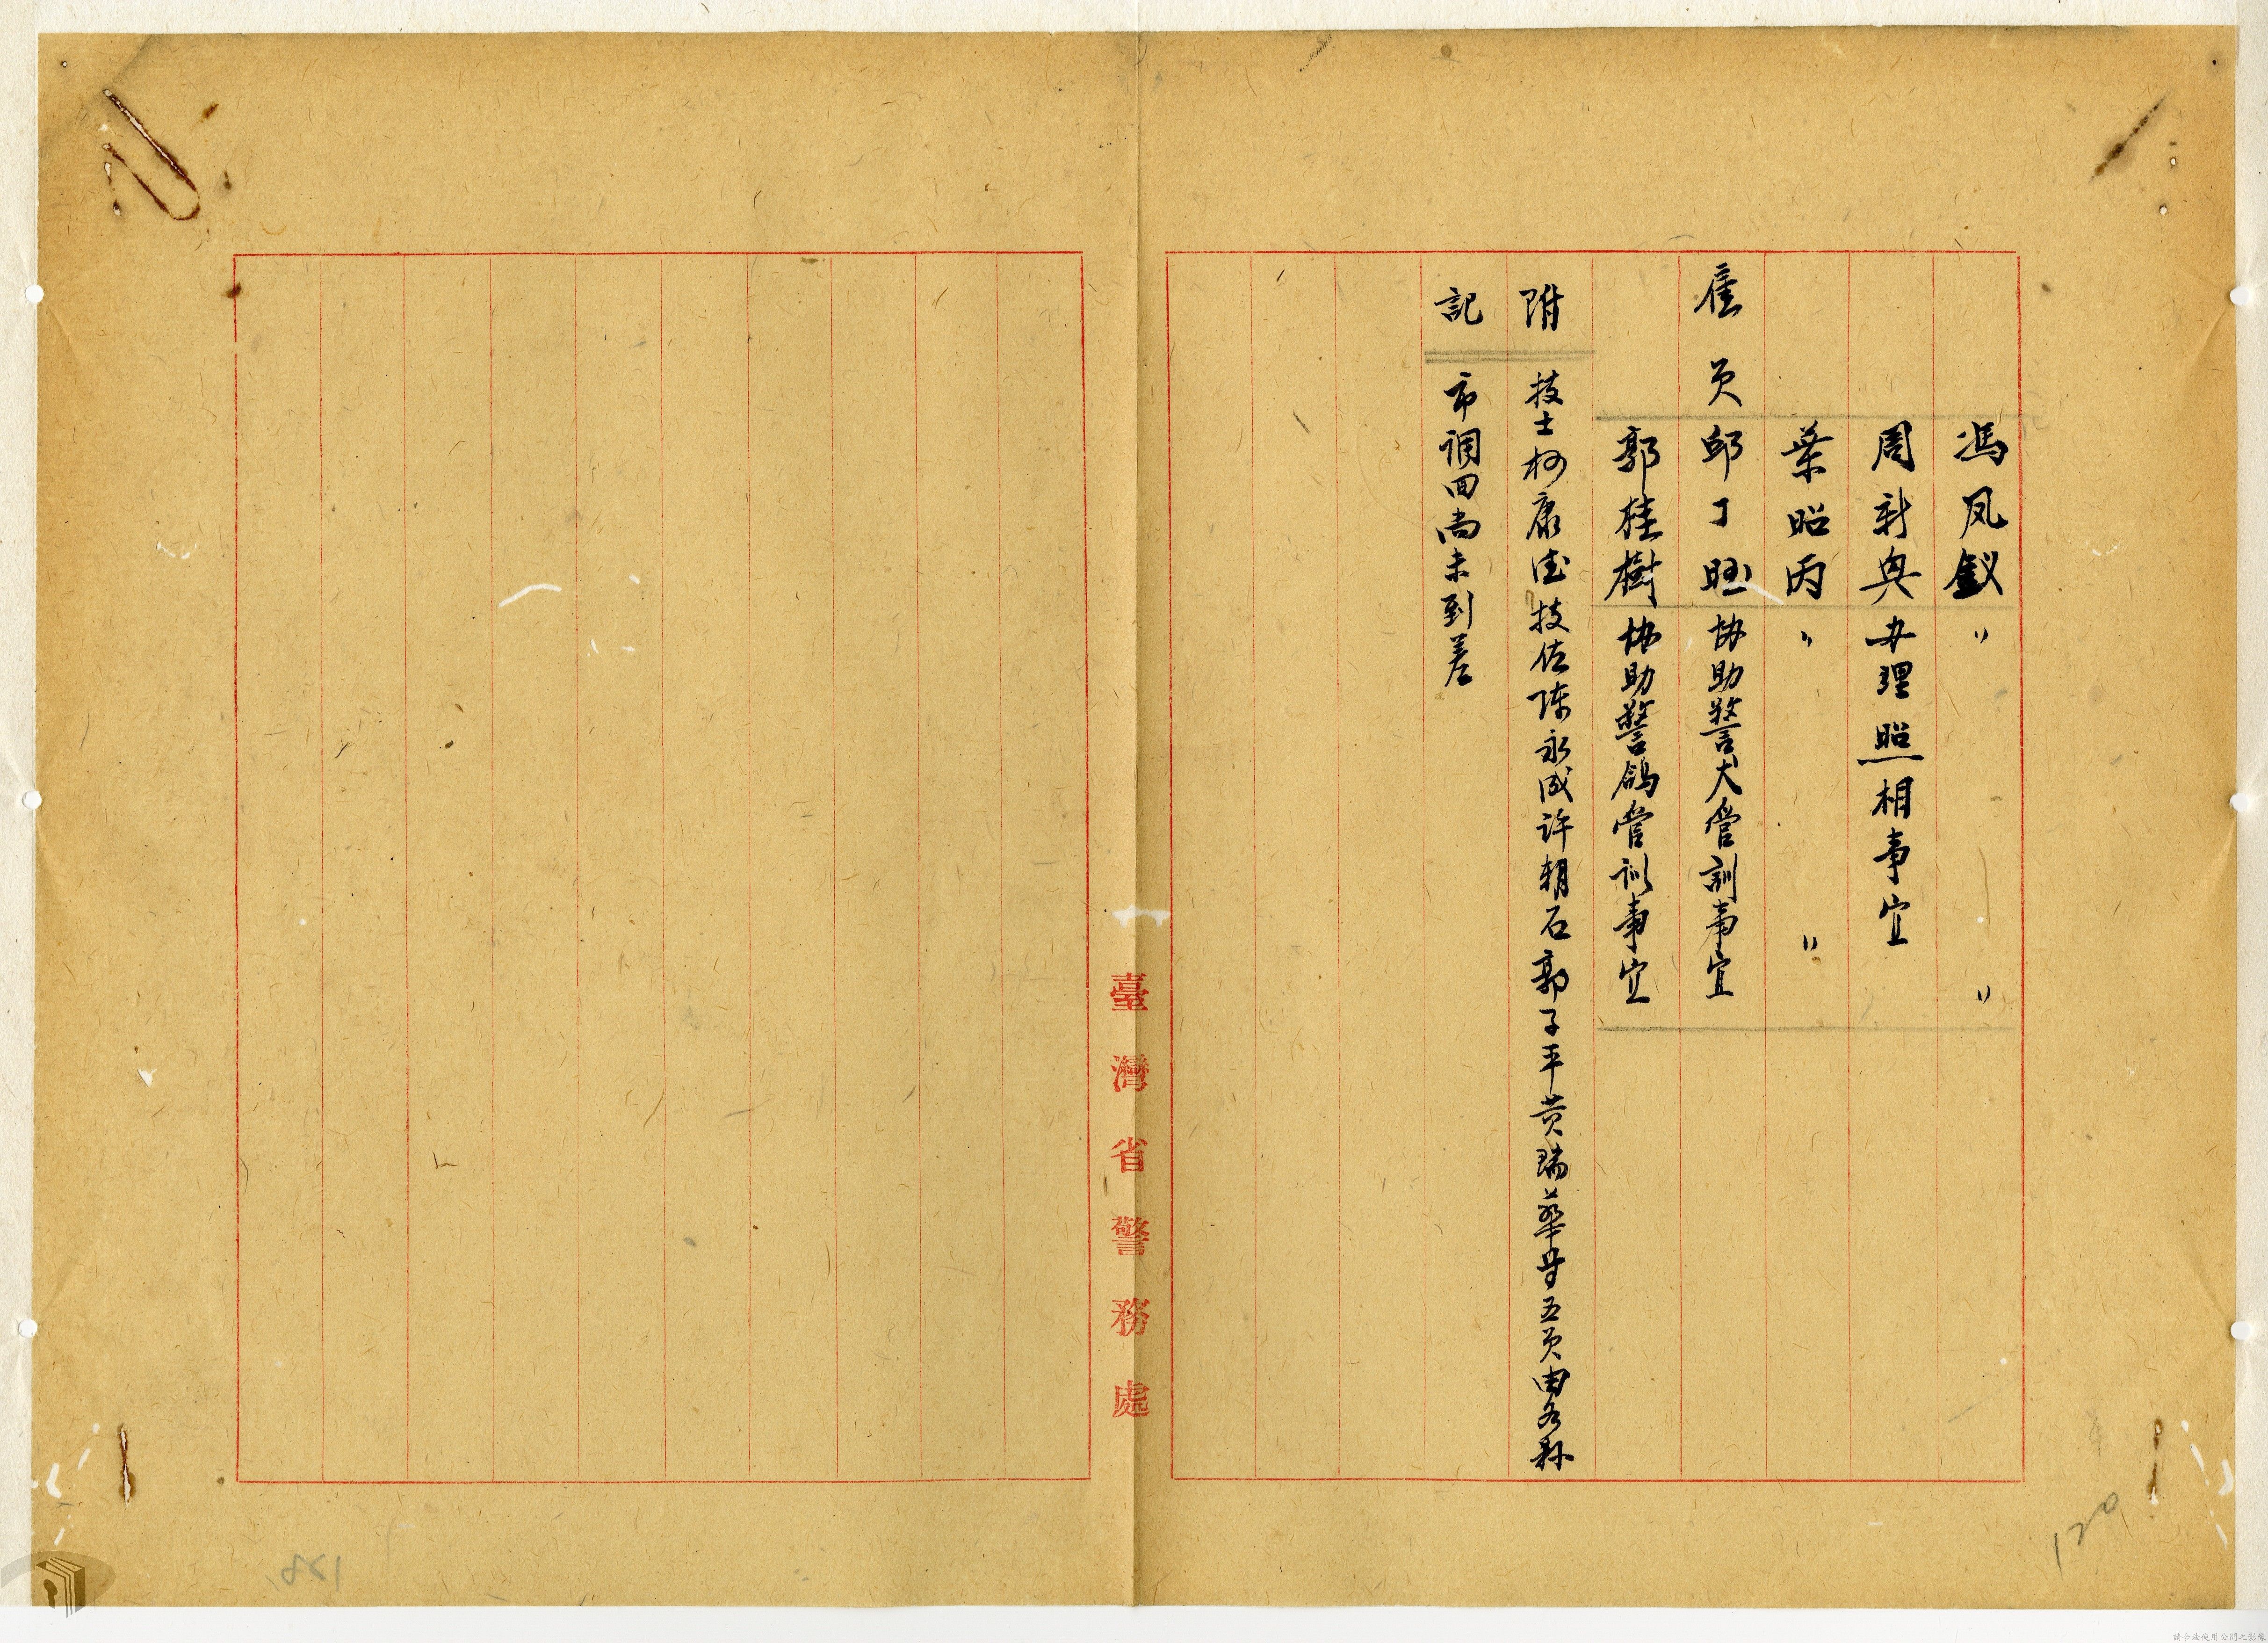 馮凤釵 〃 〃
周新典 办理照相事宜
葉昭丙 〃 〃
雇员 邱丁旺 协助警犬管訓事宜
郭桂樹 协助警鴿管训事宜
附 技士柯康德技佐陈永成许朝石郭子平黄瑞華等五员由各縣
記 市调回尚未到差
臺灣省警務處
120
請合法使用公開之影像